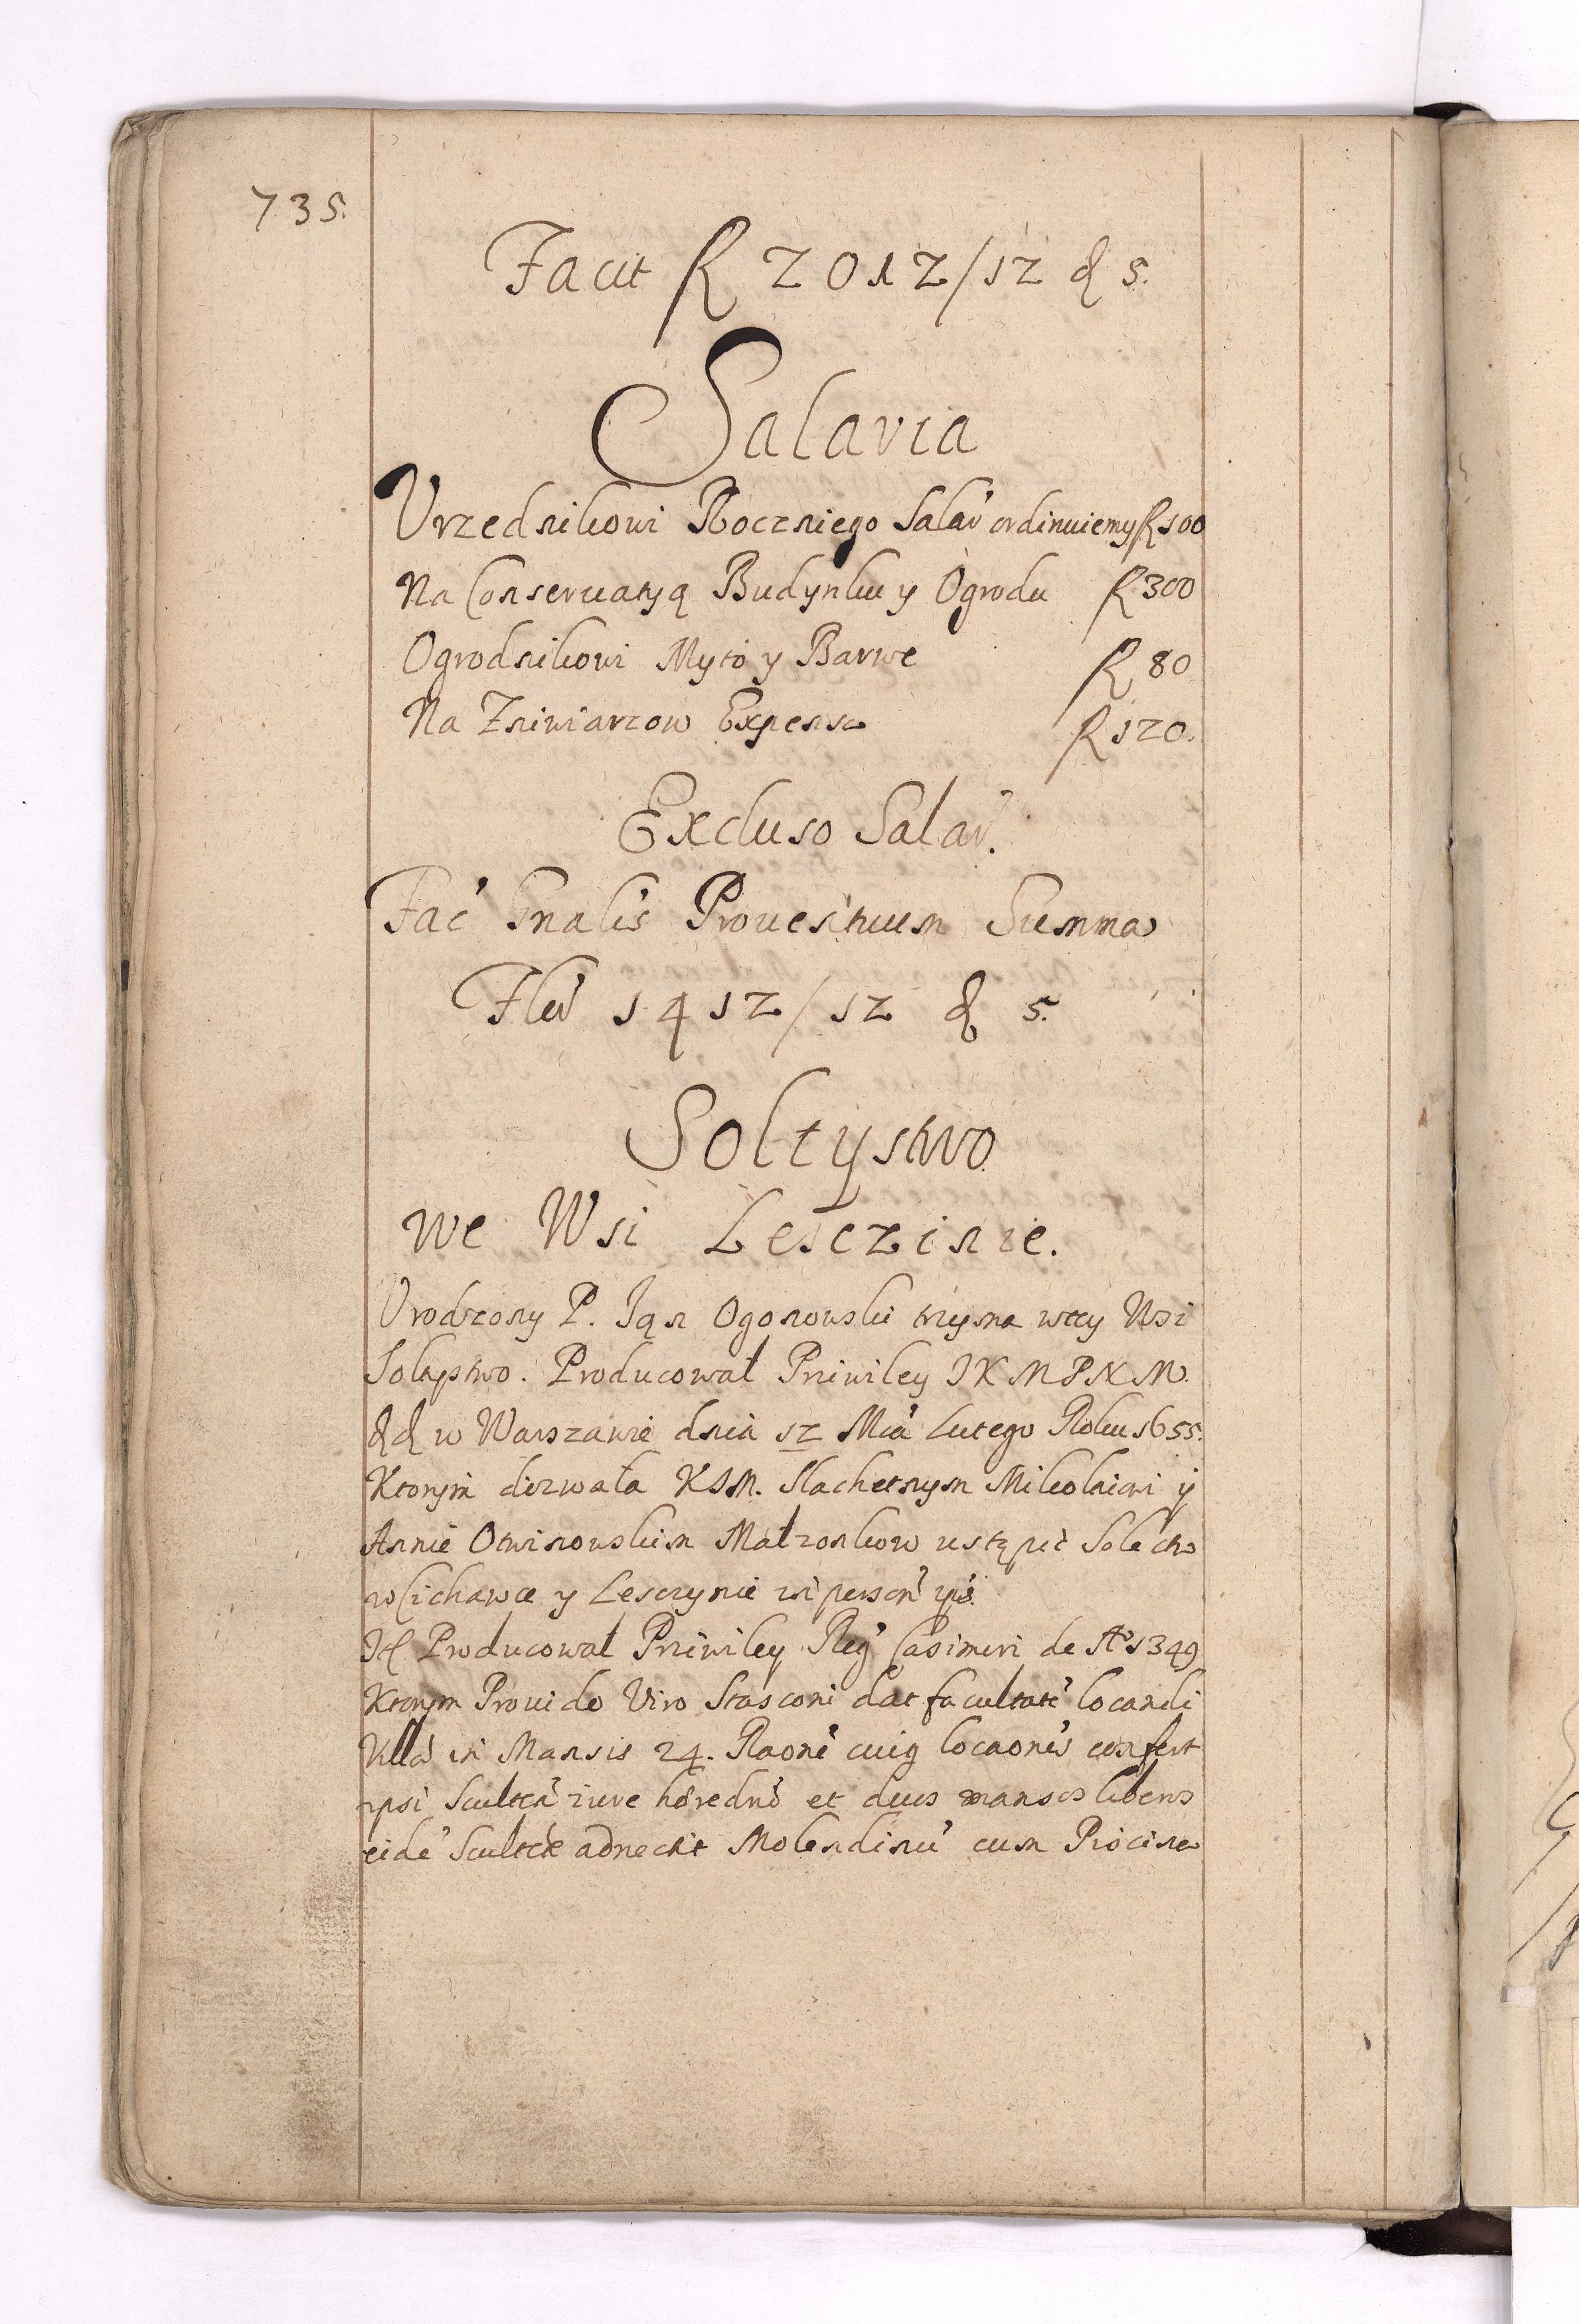 735.
Facit fl 2012/12 δ 5.
Salaria
Vrzednikowi Roczniego Salar' ordinuiemy fl 100
Na Conseruatyą Budynku y Ogrodu fl 300
Ogrodnikowi Myto y Barwe fl 80
Na Zniwiarzow Expensa fl 120.
Excluso Salar'.
Fac' Gnalis Prouentuum Summa
Flen' 1412/12 δ 5.
Soltystwo
we Wsi Lesczinie.
Vrodzony P. Ian Ogonowski trzyma wtey Wsi
Soltystwo. Producował Priwiley IKMPNM.
w Warszawie dnia 12 Mca Lutego Roku 1655.
Ktorym dozwala KIM. Slachetnym Mikolaiowi y
Annie Otwinowskim Małzonkow ustąpić Solectwo
w Cichawce y Lesczynie in person' ips.
It Producował Priwiley Reg' Casimiri de Ao 1349
Ktorym Prouido Viro Stasconi dat facultate' locandi
Villa' in Mansis 24. Raone' cuiq locaonis confert
ipsi Scultea' iure heredrio et duos mansos liberos
eide' Sculteae adnectit Molendinu' cum Piscina